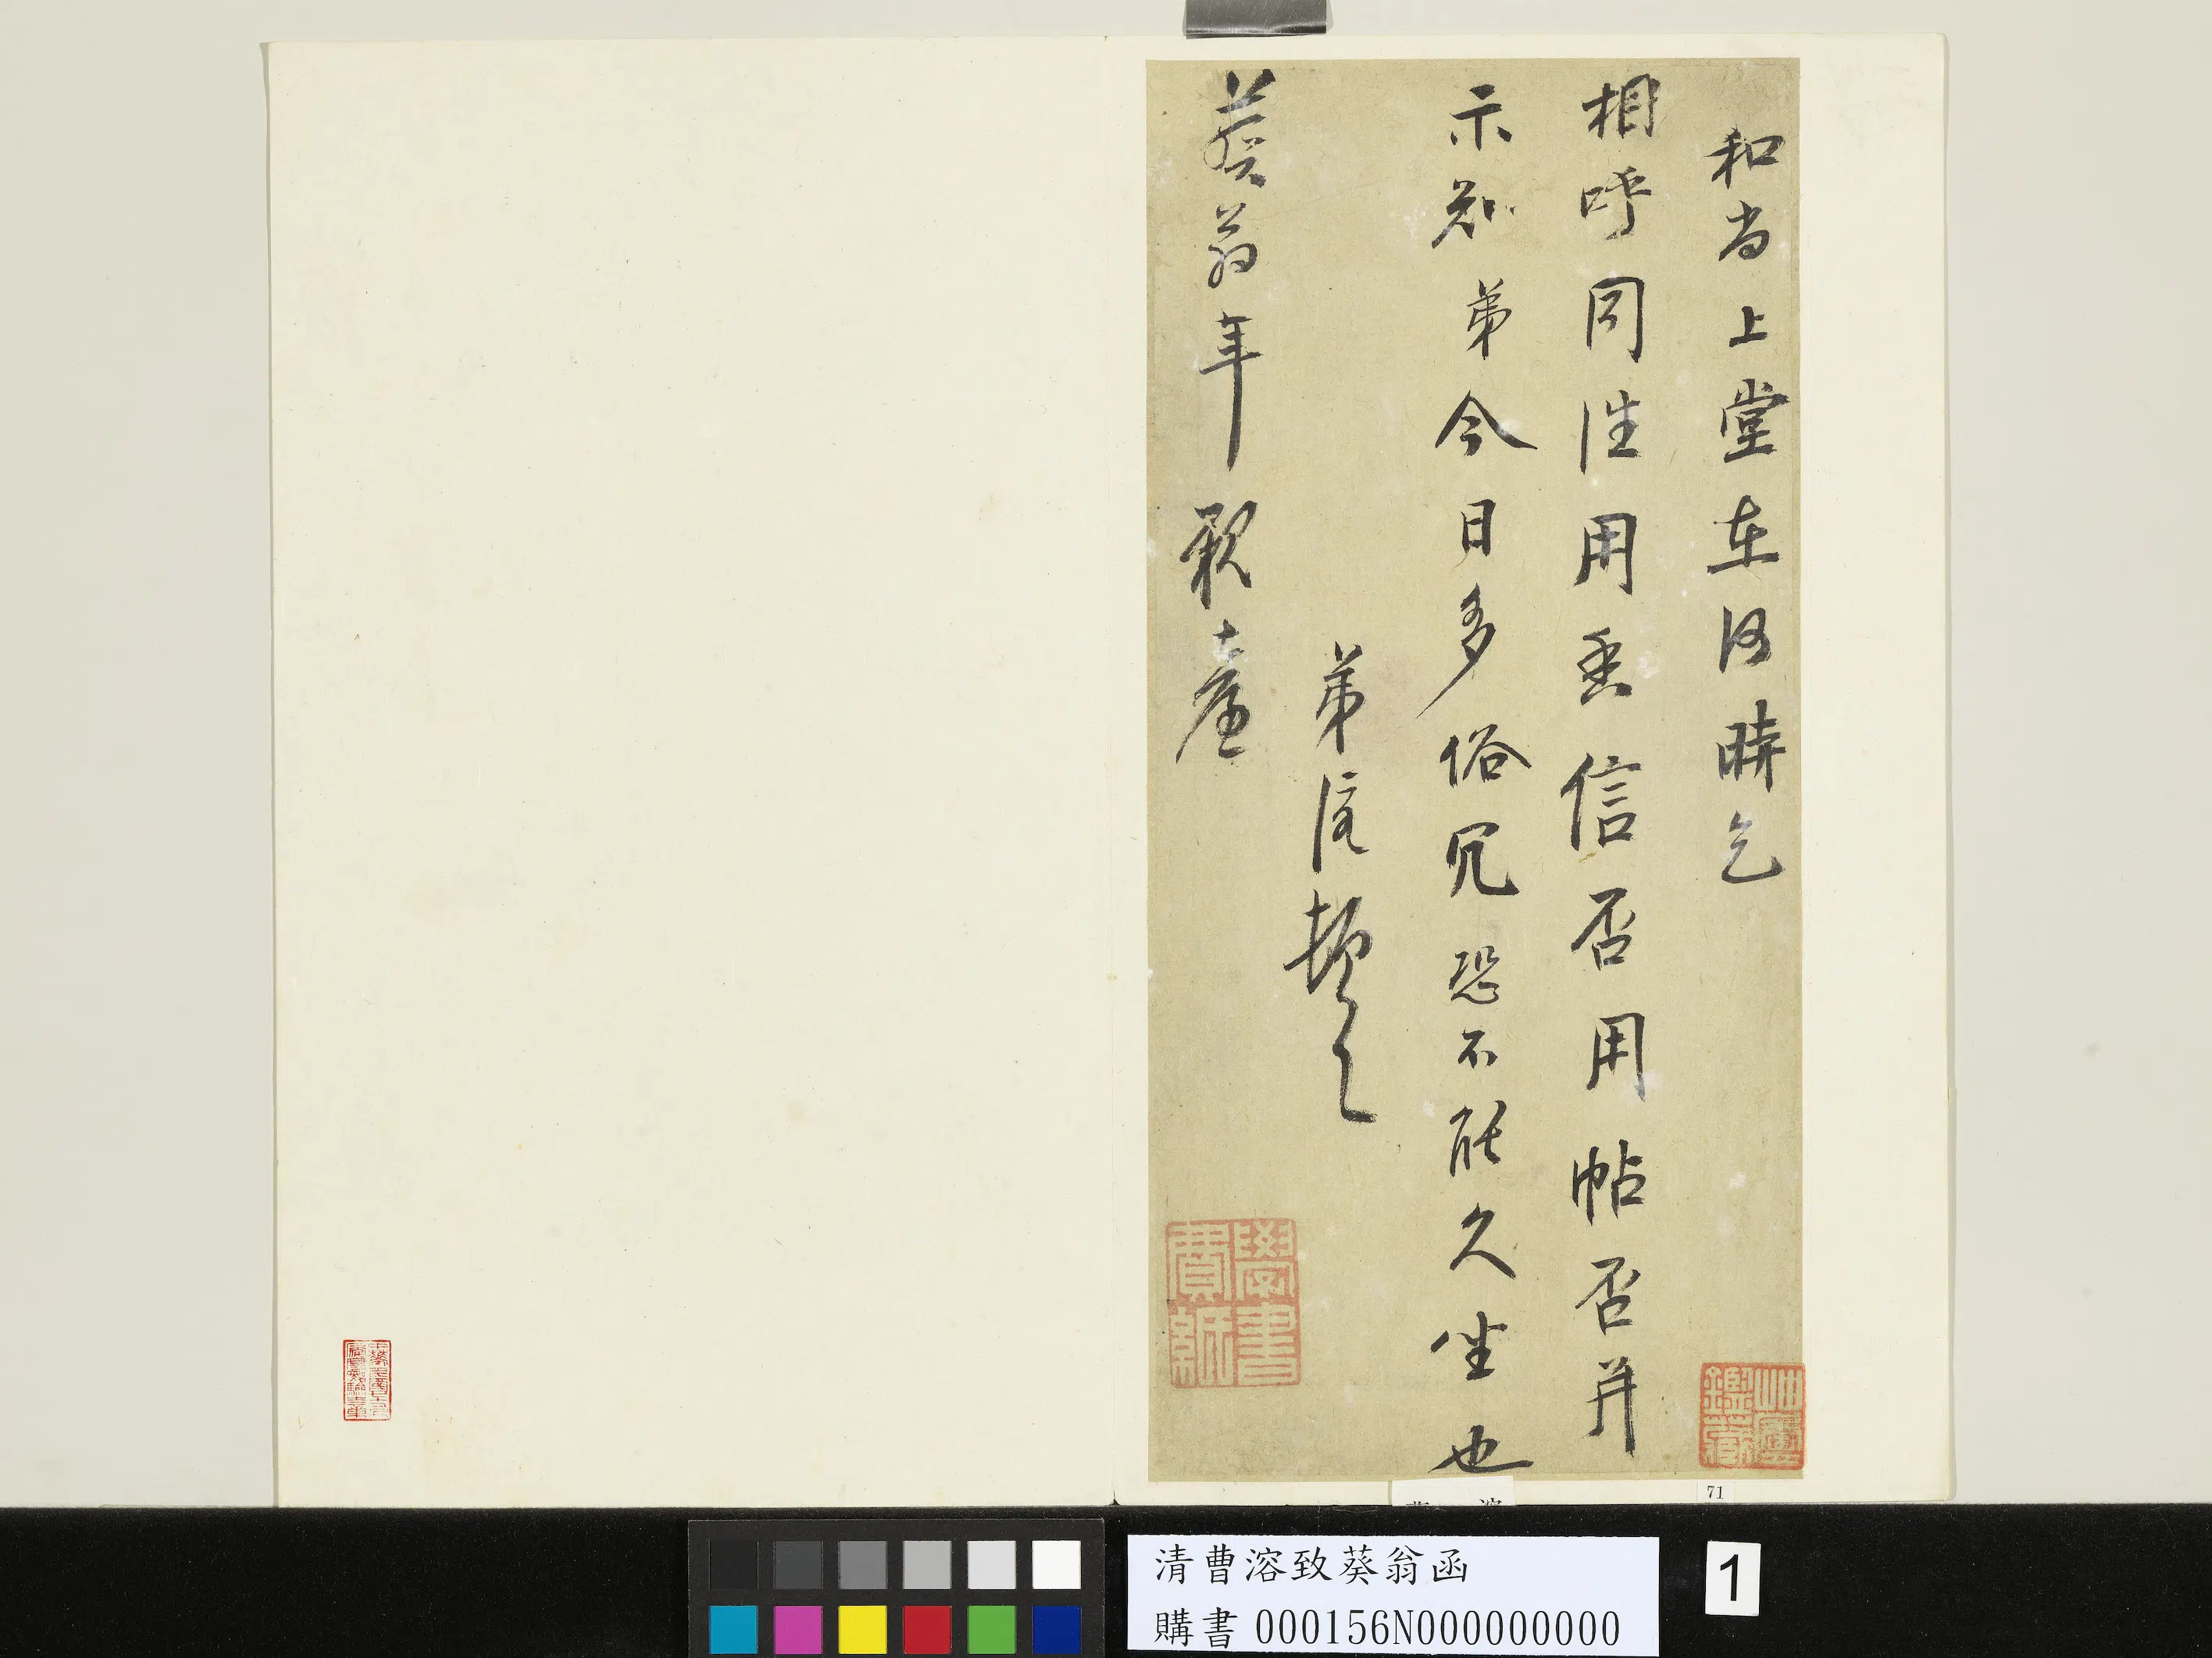 和尚上堂在何時乞
相呼同往用垂信否用帖否并
示知弟今日多俗冗恐不能久坐也
弟溶頓首
葵翁年親臺
學書
費紙
鑑藏
71
清曹溶致葵翁函
購書000156N000000000
1